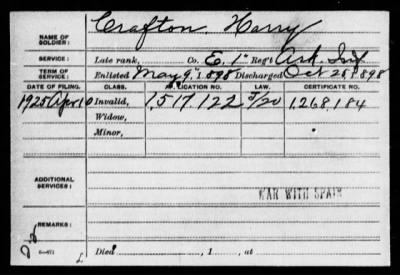 NAME OF SOLDIER: Crafton, Harry
SERVICE: Late rank, Co. E. 1" Reg't Ark. Inf
TERM OF SERVICE: Enlisted May 9", 1898 Discharged Oct 25 1898
DATE OF FILING. CLASS. APPLICATION NO. LAW. CERTIFICATE NO.
1925 Apr 10 Invalid, 1,517,122 J/20 1,268,184
Widow,
Minor,
ADDITIONAL SERVICES:
WAR WITH SPAIN
REMARKS:
6-671 Died , 1 , at